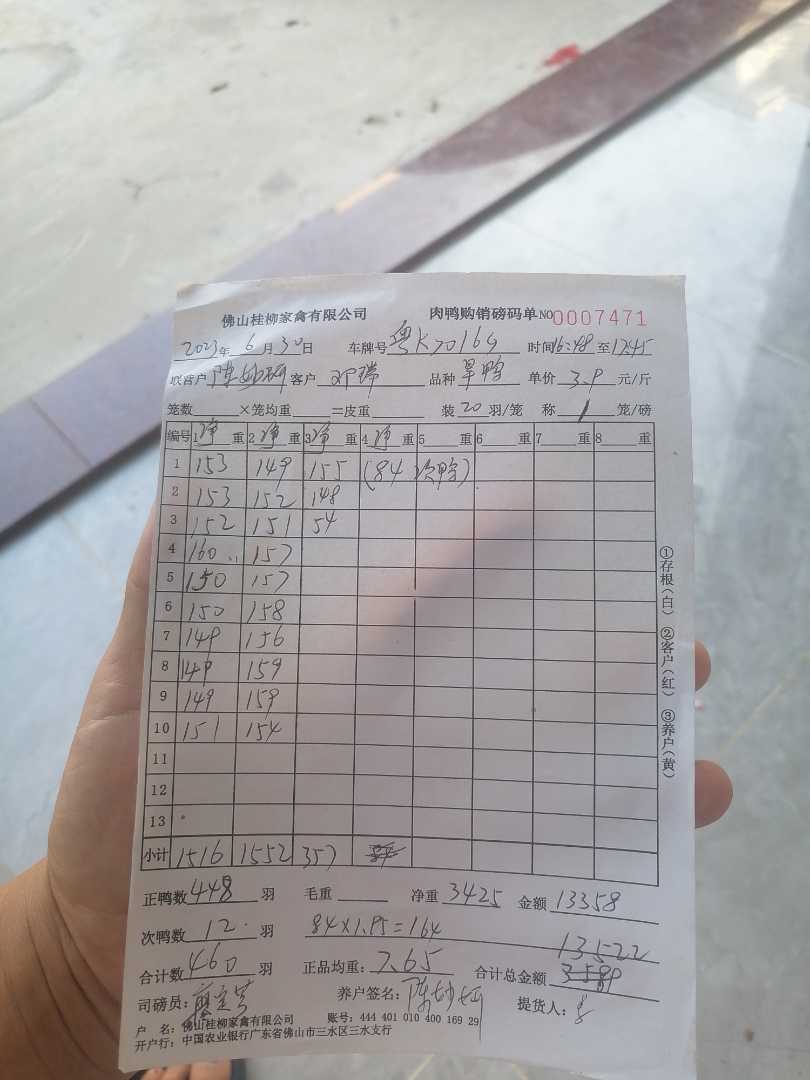 佛山桂柳家禽有限公司 肉鸭购销磅码单 NO 0007471
2023年 6月30日 车牌号 粤K70169 时间16:48至17:45
联营户 陈妙珂 客户 邓瑞 品种 旱鸭 单价 3.9 元/斤
笼数 ×笼均重 =皮重 装 20 羽/笼 称 1 笼/磅
编号 1净重 2净重 3净重 4净重 5 重 6 重 7 重 8 重
1 153 149 155 (84 次鸭)
2 153 152 148
3 152 151 54
4 160 157
5 150 157
6 150 158
7 149 156
8 149 159
9 149 159
10 151 154
11
12
13
小计 1516 1552 357
正鸭数 448 羽 毛重 净重 3425 金额 13358
次鸭数 12 羽 84×1.95=164
13522
合计数 460 羽 正品均重: 7.65 合计总金额
司磅员: 养户签名: 陈妙珂 提货人:
户 名: 佛山桂柳家禽有限公司 账号: 444 401 010 400 169 29
开户行: 中国农业银行广东省佛山市三水区三水支行
①存根(白) ②客户(红) ③养户(黄)